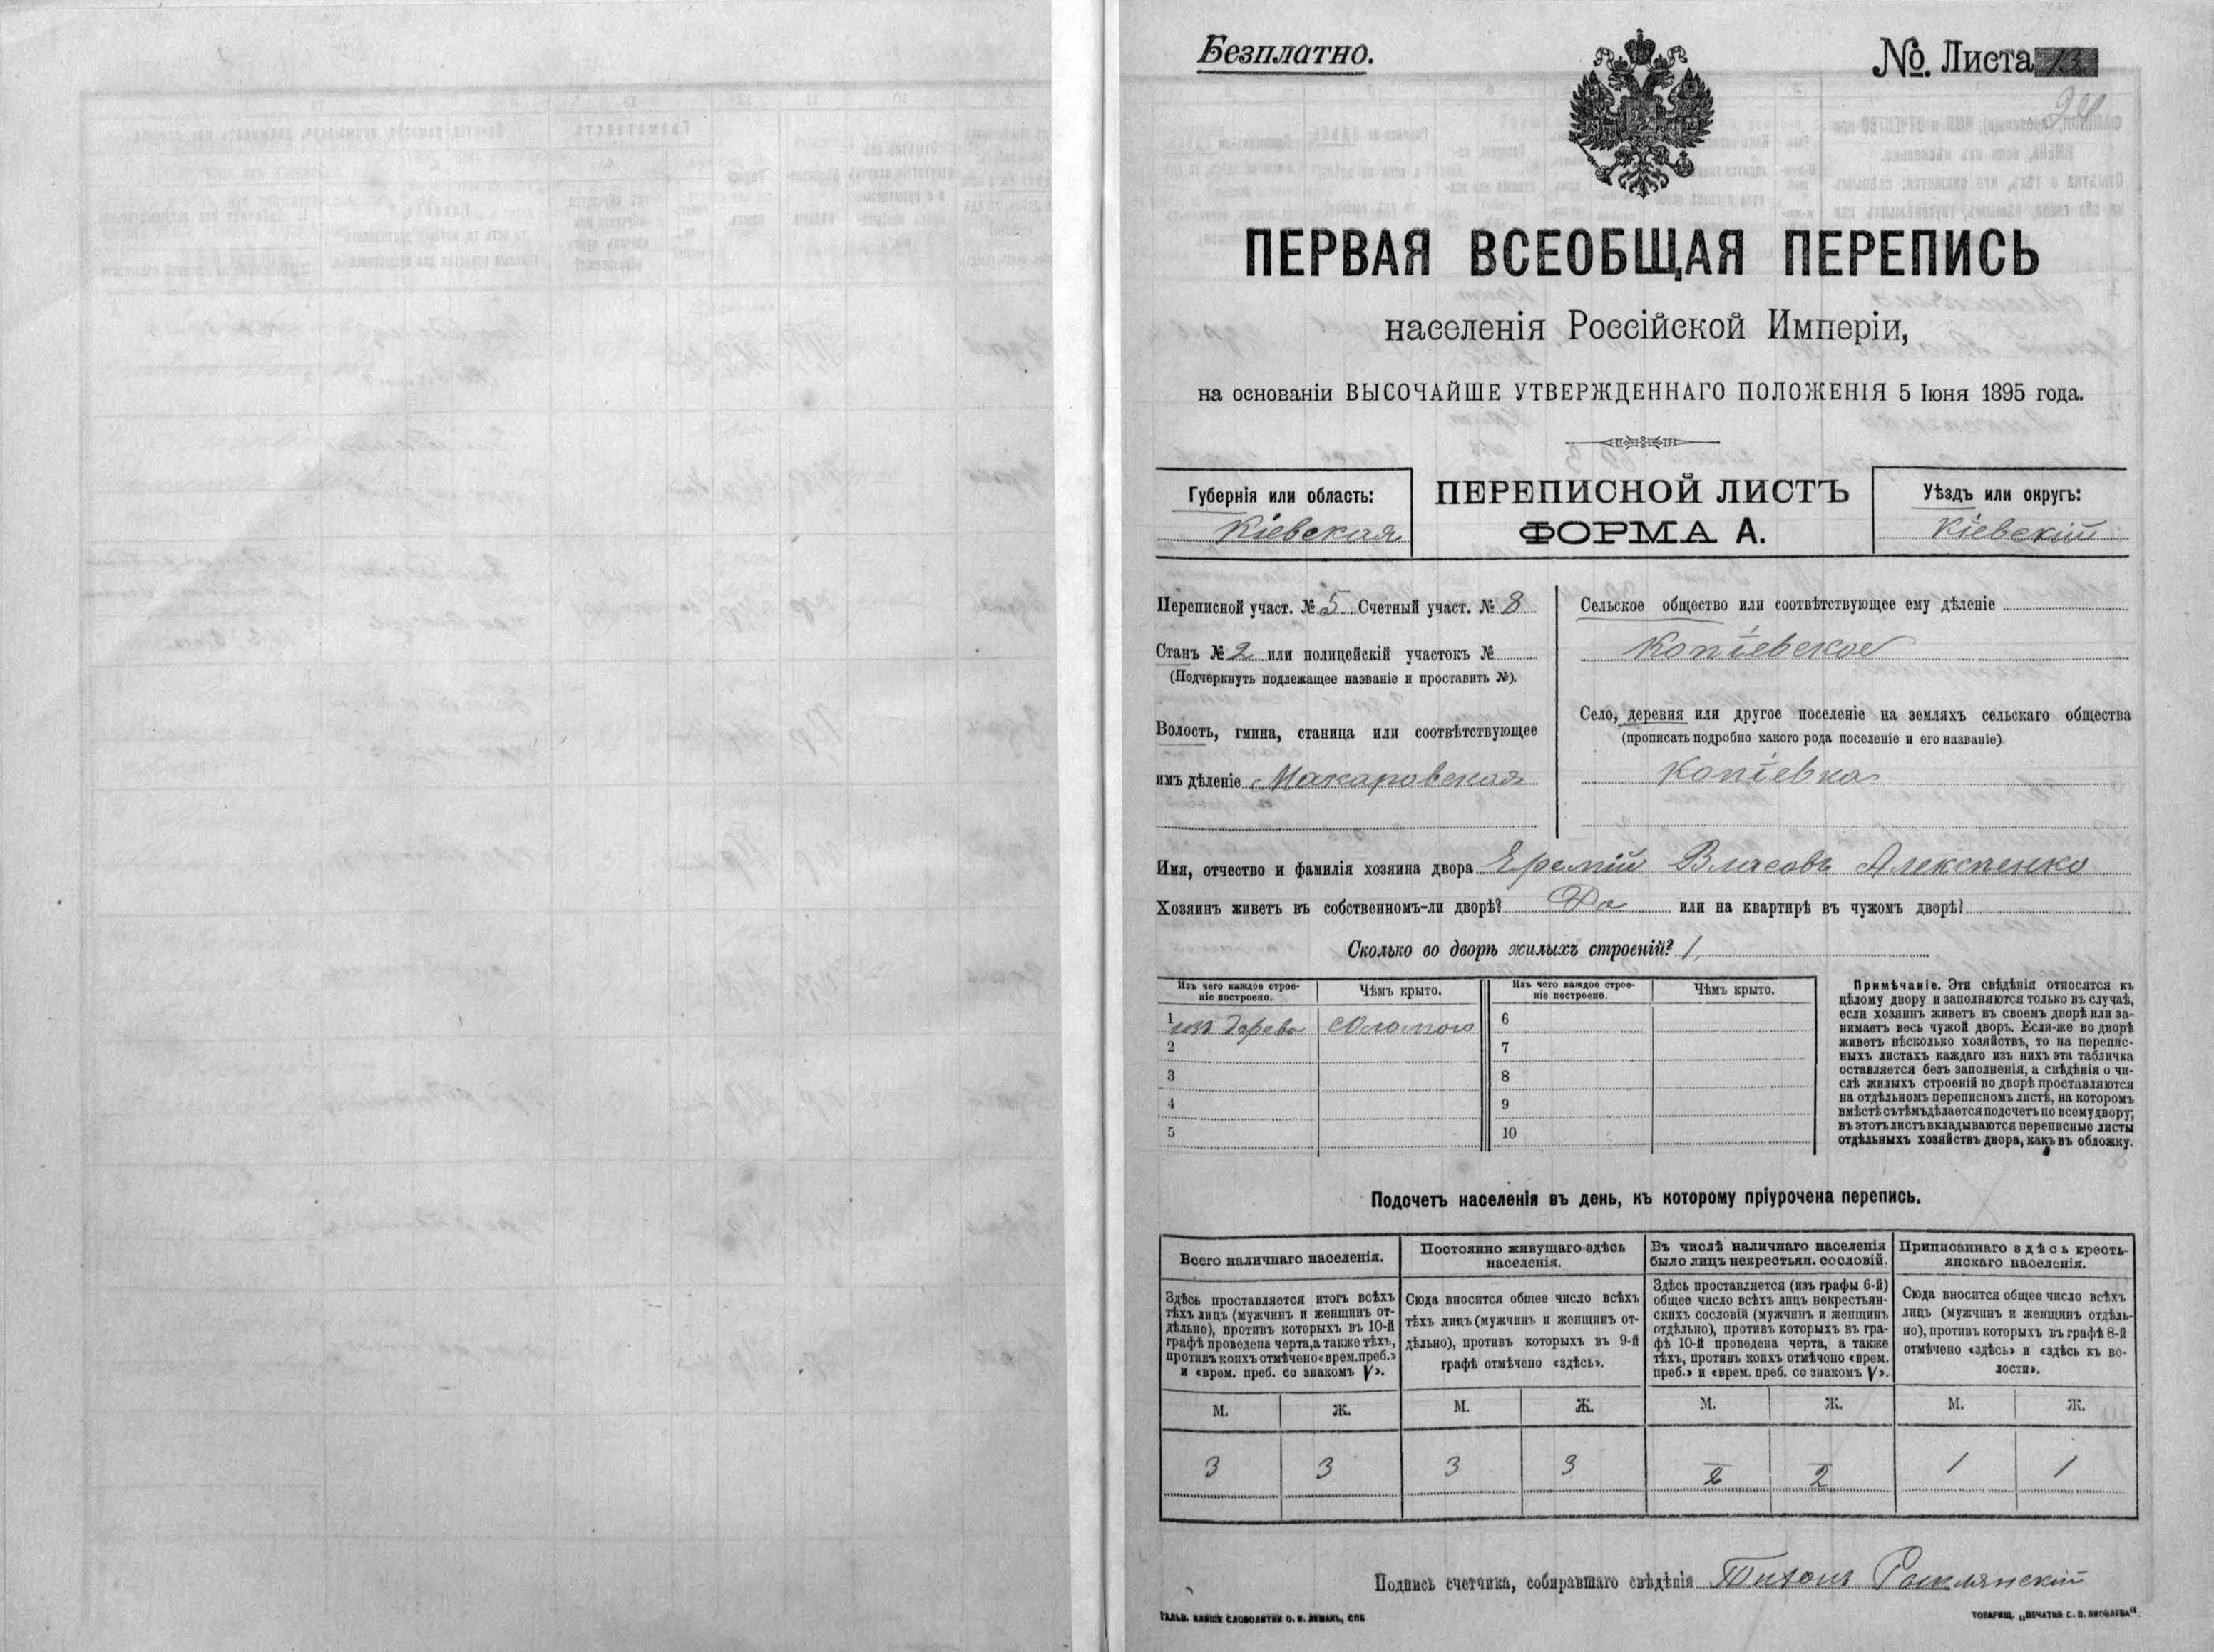 Безплатно.
№. Листа 13
ПЕРВАЯ ВСЕОБЩАЯ ПЕРЕПИСЬ
населенія Россійской Имперіи,
на основаніи ВЫСОЧАЙШЕ УТВЕРЖДЕННАГО ПОЛОЖЕНІЯ 5 Іюня 1895 года.
Губернія или область:
Кіевская
ПЕРЕПИСНОЙ ЛИСТЪ
ФОРМА А.
Уѣздъ или округъ:
Кіевскій
Переписной участ. № 5 Счетный участ. № 8
Станъ № 2 или полицейскій участокъ №
(Подчеркнуть подлежащее названіе и проставить №).
Волость, гмина, станица или соотвѣтствующее
имъ дѣленіе Макаровская
Сельское общество или соотвѣтствующее ему дѣленіе
Копіевское
Село, деревня или другое поселеніе на земляхъ сельскаго общества
(прописать подробно какого рода поселеніе и его названіе)
Копіевка
Имя, отчество и фамилія хозяина двора Еремій Власовъ Алексіенко
Хозяинъ живетъ въ собственномъ-ли дворѣ? Да или на квартирѣ въ чужомъ дворѣ?
Сколько во дворѣ жилыхъ строеній? 1
Изъ чего каждое строе-
ніе построено.
Чѣмъ крыто.
Изъ чего каждое строе-
ніе построено.
Чѣмъ крыто.
1 изъ дерева соломою
2
3
4
5
6
7
8
9
10
Примѣчаніе. Эти свѣдѣнія относятся къ
цѣлому двору и заполняются только въ случаѣ,
если хозяинъ живетъ въ своемъ дворѣ или за-
нимаетъ весь чужой дворъ. Если-же во дворѣ
живетъ нѣсколько хозяйствъ, то на перепис-
ныхъ листахъ каждаго изъ нихъ эта табличка
оставляется безъ заполненія, а свѣдѣнія о чи-
слѣ жилыхъ строеній во дворѣ проставляются
на отдѣльномъ переписномъ листѣ, на которомъ
вмѣстѣ съ тѣмъ дѣлается подсчетъ по всему двору;
въ этотъ листъ вкладываются переписные листы
отдѣльныхъ хозяйствъ двора, какъ въ обложку.
Подсчетъ населенія въ день, къ которому пріурочена перепись.
Всего наличнаго населенія.
Здѣсь проставляется итогъ всѣхъ
тѣхъ лицъ (мужчинъ и женщинъ от-
дѣльно), противъ которыхъ въ 10-й
графѣ проведена черта, а также тѣхъ,
противъ коихъ отмѣчено «врем. преб.»
и «врем. преб. со знакомъ V».
Постоянно живущаго здѣсь
населенія.
Сюда вносится общее число всѣхъ
тѣхъ лицъ (мужчинъ и женщинъ от-
дѣльно), противъ которыхъ въ 9-й
графѣ отмѣчено «здѣсь».
Въ числѣ наличнаго населенія
было лицъ некрестьян. сословій.
Здѣсь проставляется (изъ графы 6-й)
общее число всѣхъ лицъ некрестьян-
скихъ сословій (мужчинъ и женщинъ
отдѣльно), противъ которыхъ въ гра-
фѣ 10-й проведена черта, а также
тѣхъ, противъ коихъ отмѣчено «врем.
преб.» и «врем. преб. со знакомъ V».
Приписаннаго здѣсь кресть-
янскаго населенія.
Сюда вносится общее число всѣхъ
лицъ (мужчинъ и женщинъ отдѣль-
но), противъ которыхъ въ графѣ 8-й
отмѣчено «здѣсь» и «здѣсь къ во-
лости».
М. Ж. М. Ж. М. Ж. М. Ж.
3 3 3 3 2 2 1 1
Подпись счетчика, собиравшаго свѣдѣнія Тихонъ
ГАЛЬВ. КЛИШЕ СЛОВОЛИТНИ О. И. ЛЕМАНЪ, СПБ
ТОВАРИЩ. „ПЕЧАТНЯ С. П. ЯКОВЛЕВА"